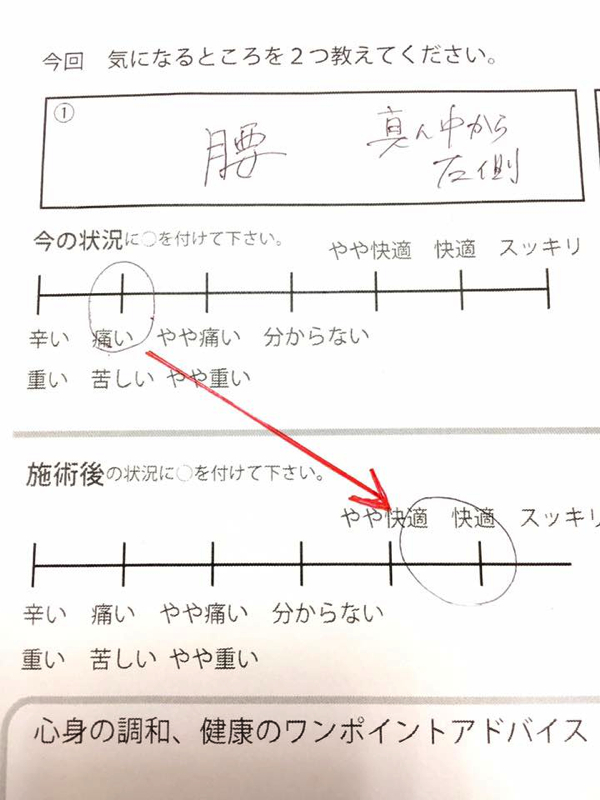 今回 気になるところを2つ教えてください。
① 腰 真ん中から
左側
今の状況に○を付けて下さい。
やや快適 快適 スッキリ
辛い 痛い やや痛い 分からない
重い 苦しい やや重い
施術後の状況に○を付けて下さい。
やや快適 快適 スッキリ
辛い 痛い やや痛い 分からない
重い 苦しい やや重い
心身の調和、健康のワンポイントアドバイス